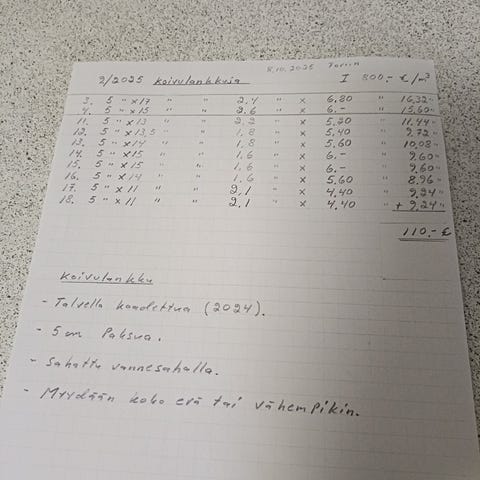 8.10.2025 Toriin
2/2025 Koivulankkuja I 800,- €/m³
3. 5 " x 17 " " 2.4 " x 6,80 " 16,32 "
4. 5 " x 15 " " 2.6 " x 6.- " 15,60 "
11. 5 " x 13 " " 2.2 " x 5,20 " 11,44 "
12. 5 " x 13,5 " " 1,8 " x 5,40 " 9,72 "
13. 5 " x 14 " " 1,8 " x 5,60 " 10,08 "
14. 5 " x 15 " " 1,6 " x 6.- " 9,60 "
15. 5 " x 15 " " 1,6 " x 6.- " 9,60 "
16. 5 " x 14 " " 1.6 " x 5,60 " 8,96 "
17. 5 " x 11 " " 2.1 " x 4.40 " 9,24 "
18. 5 " x 11 " " 2.1 " x 4.40 " + 9,24 "
110,- €
Koivulankku
- Talvella kaadettua (2024).
- 5 cm Paksua.
- Sahattu vannesahalla.
- Myydään koko erä tai vähempikin.